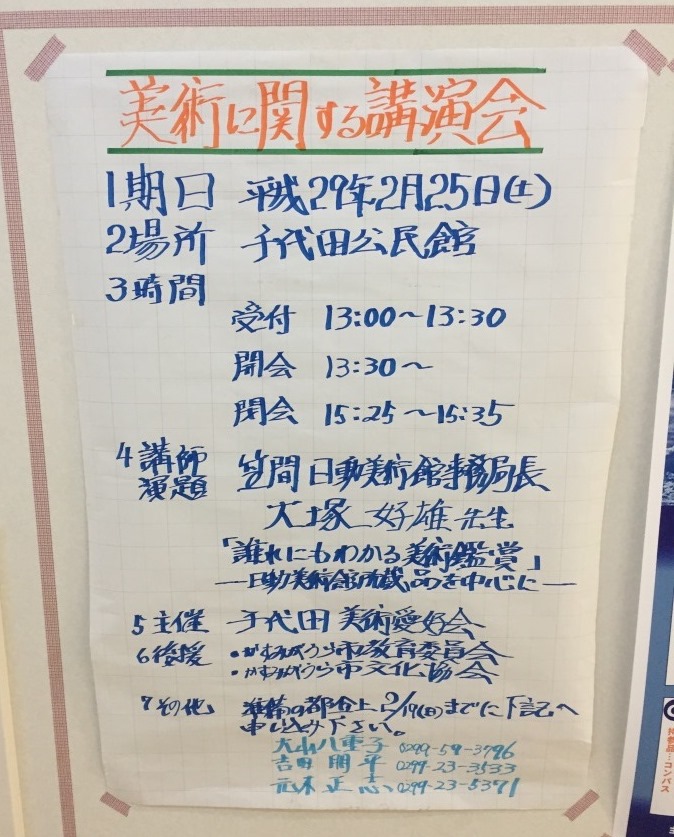 美術に関する講演会
1期日 平成29年2月25日(土)
2場所 千代田公民館
3時間
受付 13:00～13:30
開会 13:30～
閉会 15:25～15:35
4講師 笠間日動美術館事務局長
演題
大塚好雄先生
「誰れにもわかる美術鑑賞」
―日動美術館所蔵品を中心に―
5主催 千代田美術愛好会
6後援 ・かすみがうら市教育委員会
・かすみがうら市文化協会
7その他 準備の都合上2/19(日)までに下記へ
申し込み下さい。
大山八重子 0299-59-3796
吉田 0299-23-3533
元木正志 0299-23-5371
コンパス